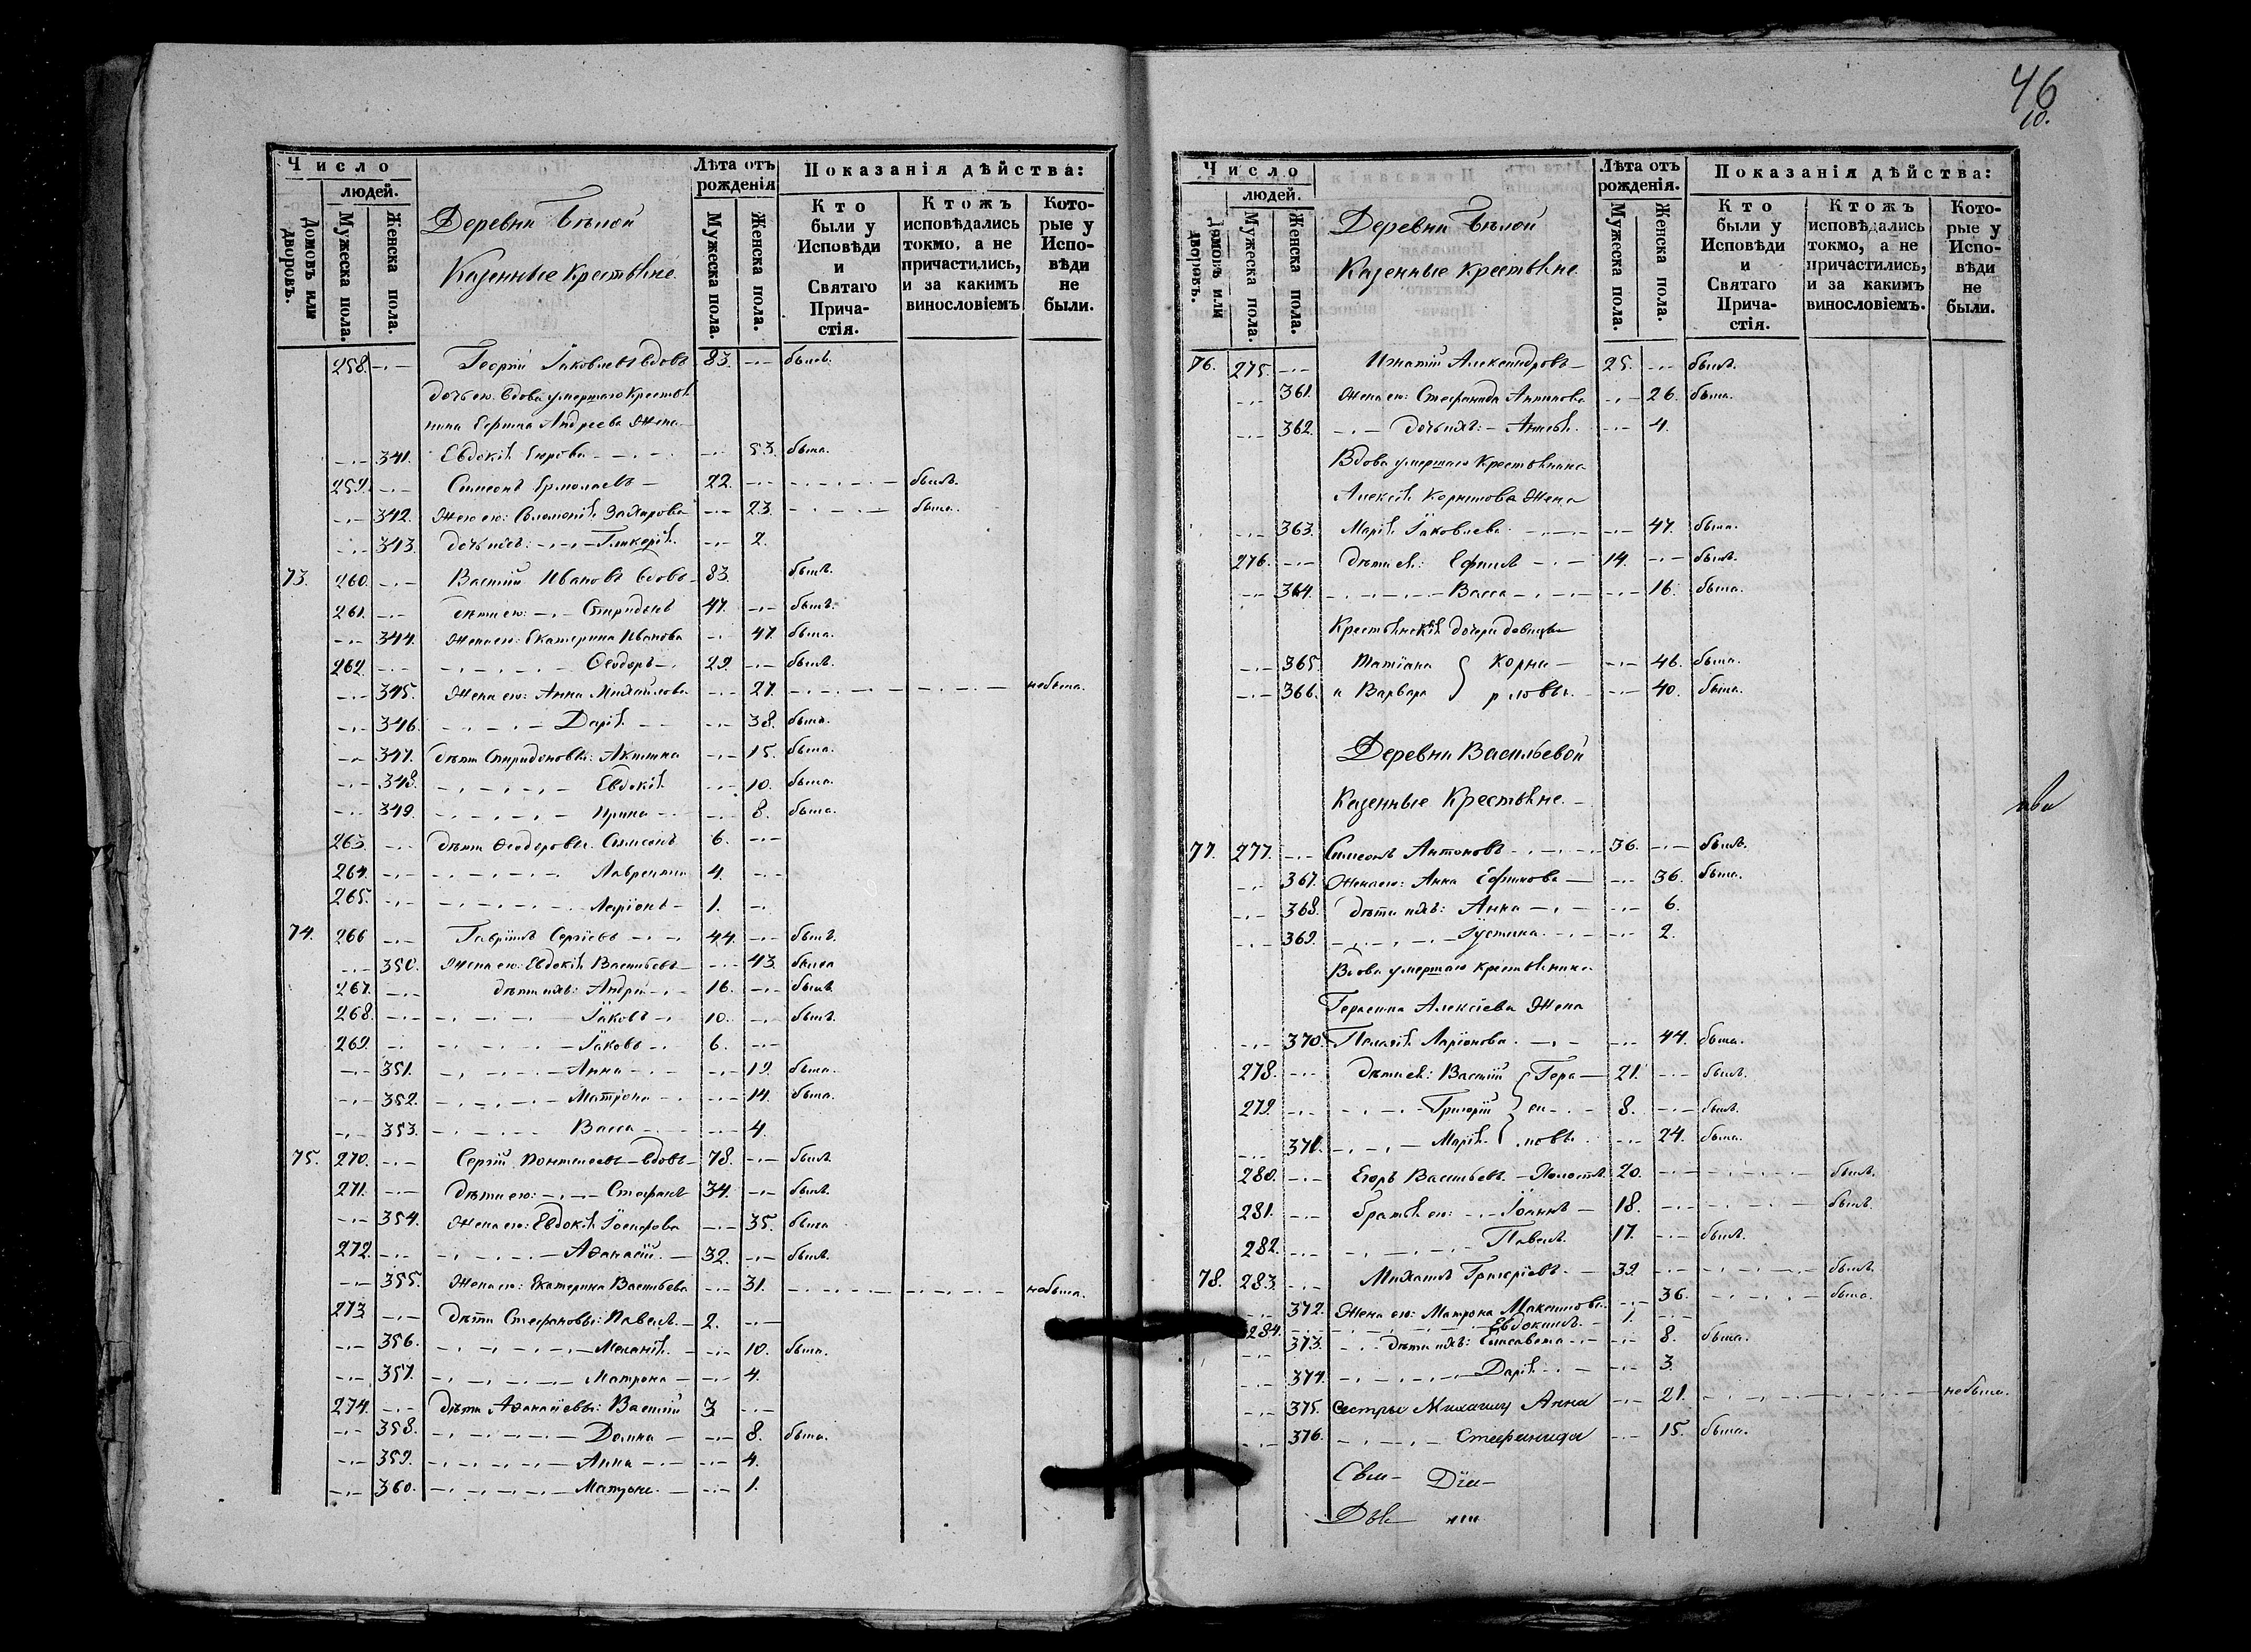 46
10.
Число
людей.
Домовъ или дворовъ.
Мужеска пола.
Женска пола.
Деревни Бѣлой
Казенные крестьяне.
Лѣта отъ рожденія
Мужеска пола.
Женска пола.
Показанія дѣйства:
Кто были у Исповѣди и Святаго Прича-стія.
Ктожъ исповѣдались токмо, а не причастились, и за какимъ винословіемъ
Кото-рые у Испо-вѣди не были.
258. -.- Георгій Іаковлевъ вдовъ 83. -.- былъ.
дочь ею вдова умершаго крестья
нина Андреева жена
-.- 341. Евдокія -.- 53. была.
259. -.- Симеонъ Ермолаевъ 22. -.- былъ.
-.- 342. Жена ею: Соломонія Захарова -.- 23. была.
-.- 343. дочь ихъ: Гликерія -.- 2.
73. 260. -.- Василій Ивановъ вдовъ 83. былъ.
261. -.- дѣти ею: Спиридонъ 47. -.- былъ.
-.- 344. Жена ею: Екатерина Иванова -.- 47. была.
262. -.- Ѳеодоръ 29. -.- былъ.
-.- 345. Жена ею: Анна Михайлова -.- 27. небыла.
-.- 346. Дарія -.- 38. была.
-.- 347. дѣти Спиридоновы: Акилина -.- 15. была.
-.- 348. Евдокія -.- 10. была.
-.- 349. Ирина -.- 8. была.
263. -.- дѣти Ѳеодоровы: Симеонъ 6. -.-
264. -.- Лаврентій 4. -.-
265. -.- Ларіонъ 1. -.-
74. 266 -.- Гавріилъ Сергіевъ 44. -.- былъ.
-.- 350. Жена ею: Евдокія Васильева -.- 43. была
267. -.- дѣти ихъ: Андрей 16. -.- былъ
268. -.- Іаковъ 10. -.- былъ.
269. -.- Іаковъ 6. -.-
-.- 351. Анна -.- 19. была.
-.- 352. Матрона -.- 14. была.
-.- 353. Васса -.- 4.
75. 270. -.- Сергій Пантелеевъ вдовъ 78. -.- былъ.
271. -.- дѣти ею: Стефанъ 34. -.- былъ.
-.- 354. Жена ею: Евдокія Іосифова -.- 35. была
272. -.- Аѳанасій 32. -.- былъ.
-.- 355. Жена ею: Екатерина Васильева -.- 31. небыла.
273 -.- дѣти Стефановы: Павелъ 2. -.-
-.- 356. Меланія -.- 10. была.
-.- 357. Матрона -.- 4.
274. -.- дѣти Аѳанасіевы: Василій 3 -.-
-.- 358. Домна -.- 8. была.
-.- 359. Анна -.- 4.
-.- 360. Матрона -.- 1.
Число
людей.
Домовъ или дворовъ.
Мужеска пола.
Женска пола.
Деревни Бѣлой
Казенные крестьяне.
Лѣта отъ рожденія.
Мужеска пола.
Женска пола.
Показанія дѣйства:
Кто были у Исповѣди и Святаго Прича-стія.
Ктожъ исповѣдались токмо, а не причастились, и за какимъ винословіемъ.
Кото-рые у Испо-вѣди не были.
76. 275. -.- Игнатій Александровъ 25. -.- былъ.
-.- 361. Жена ею: Стефанида Антипова -.- 26. была.
-.- 362. дочь ихъ: -.- 4.
Вдова умершаго крестьянина
Алексія Корнилова жена
-.- 363. Марія Іаковлева -.- 47. была.
276. -.- дѣти ея: Ефимъ 14. -.- былъ.
-.- 364. Васса -.- 16. была.
Крестьянскія дочери девицы
-.- 365. Татіана } Корни- -.- 46. была.
-.- 366. и Варвара } ловы -.- 40. была.
Деревни Васильевой
Казенные Крестьяне.
77. 277. -.- Симеонъ Антоновъ 36. -.- былъ.
-.- 367. Жена ею: Анна Ефимова -.- 36. была.
-.- 368. дѣти ихъ: Анна -.- 6.
-.- 369. Іустина -.- 2.
Вдова умершаго крестьянина
Герасима Алексіева жена
-.- 370. Пелагія Ларіонова -.- 44. была.
278. -.- дѣти ея: Василій } Гера- 21. -.- былъ.
279. -.- Григорій } си- 8. -.- былъ.
-.- 371. Марія } мовы -.- 24. была.
280. -.- Егоръ Васильевъ Холостъ 20. -.- былъ.
281. -.- братья ею: Іоаннъ 18. -.- былъ.
282. -.- Павелъ 17. -.- былъ.
78. 283. -.- Михаилъ Григоріевъ 39. -.- былъ.
-.- 372. Жена ею: Матрона Максимова -.- 36. была.
284. Евдокимъ 1. -.-
-.- 373. дѣти ихъ: Елисавета -.- 8. была.
-.- 374. Дарія -.- 3.
-.- 375. Сестры Михаилу Анна -.- 21. небыла.
-.- 376. Стефанида -.- 15. была.